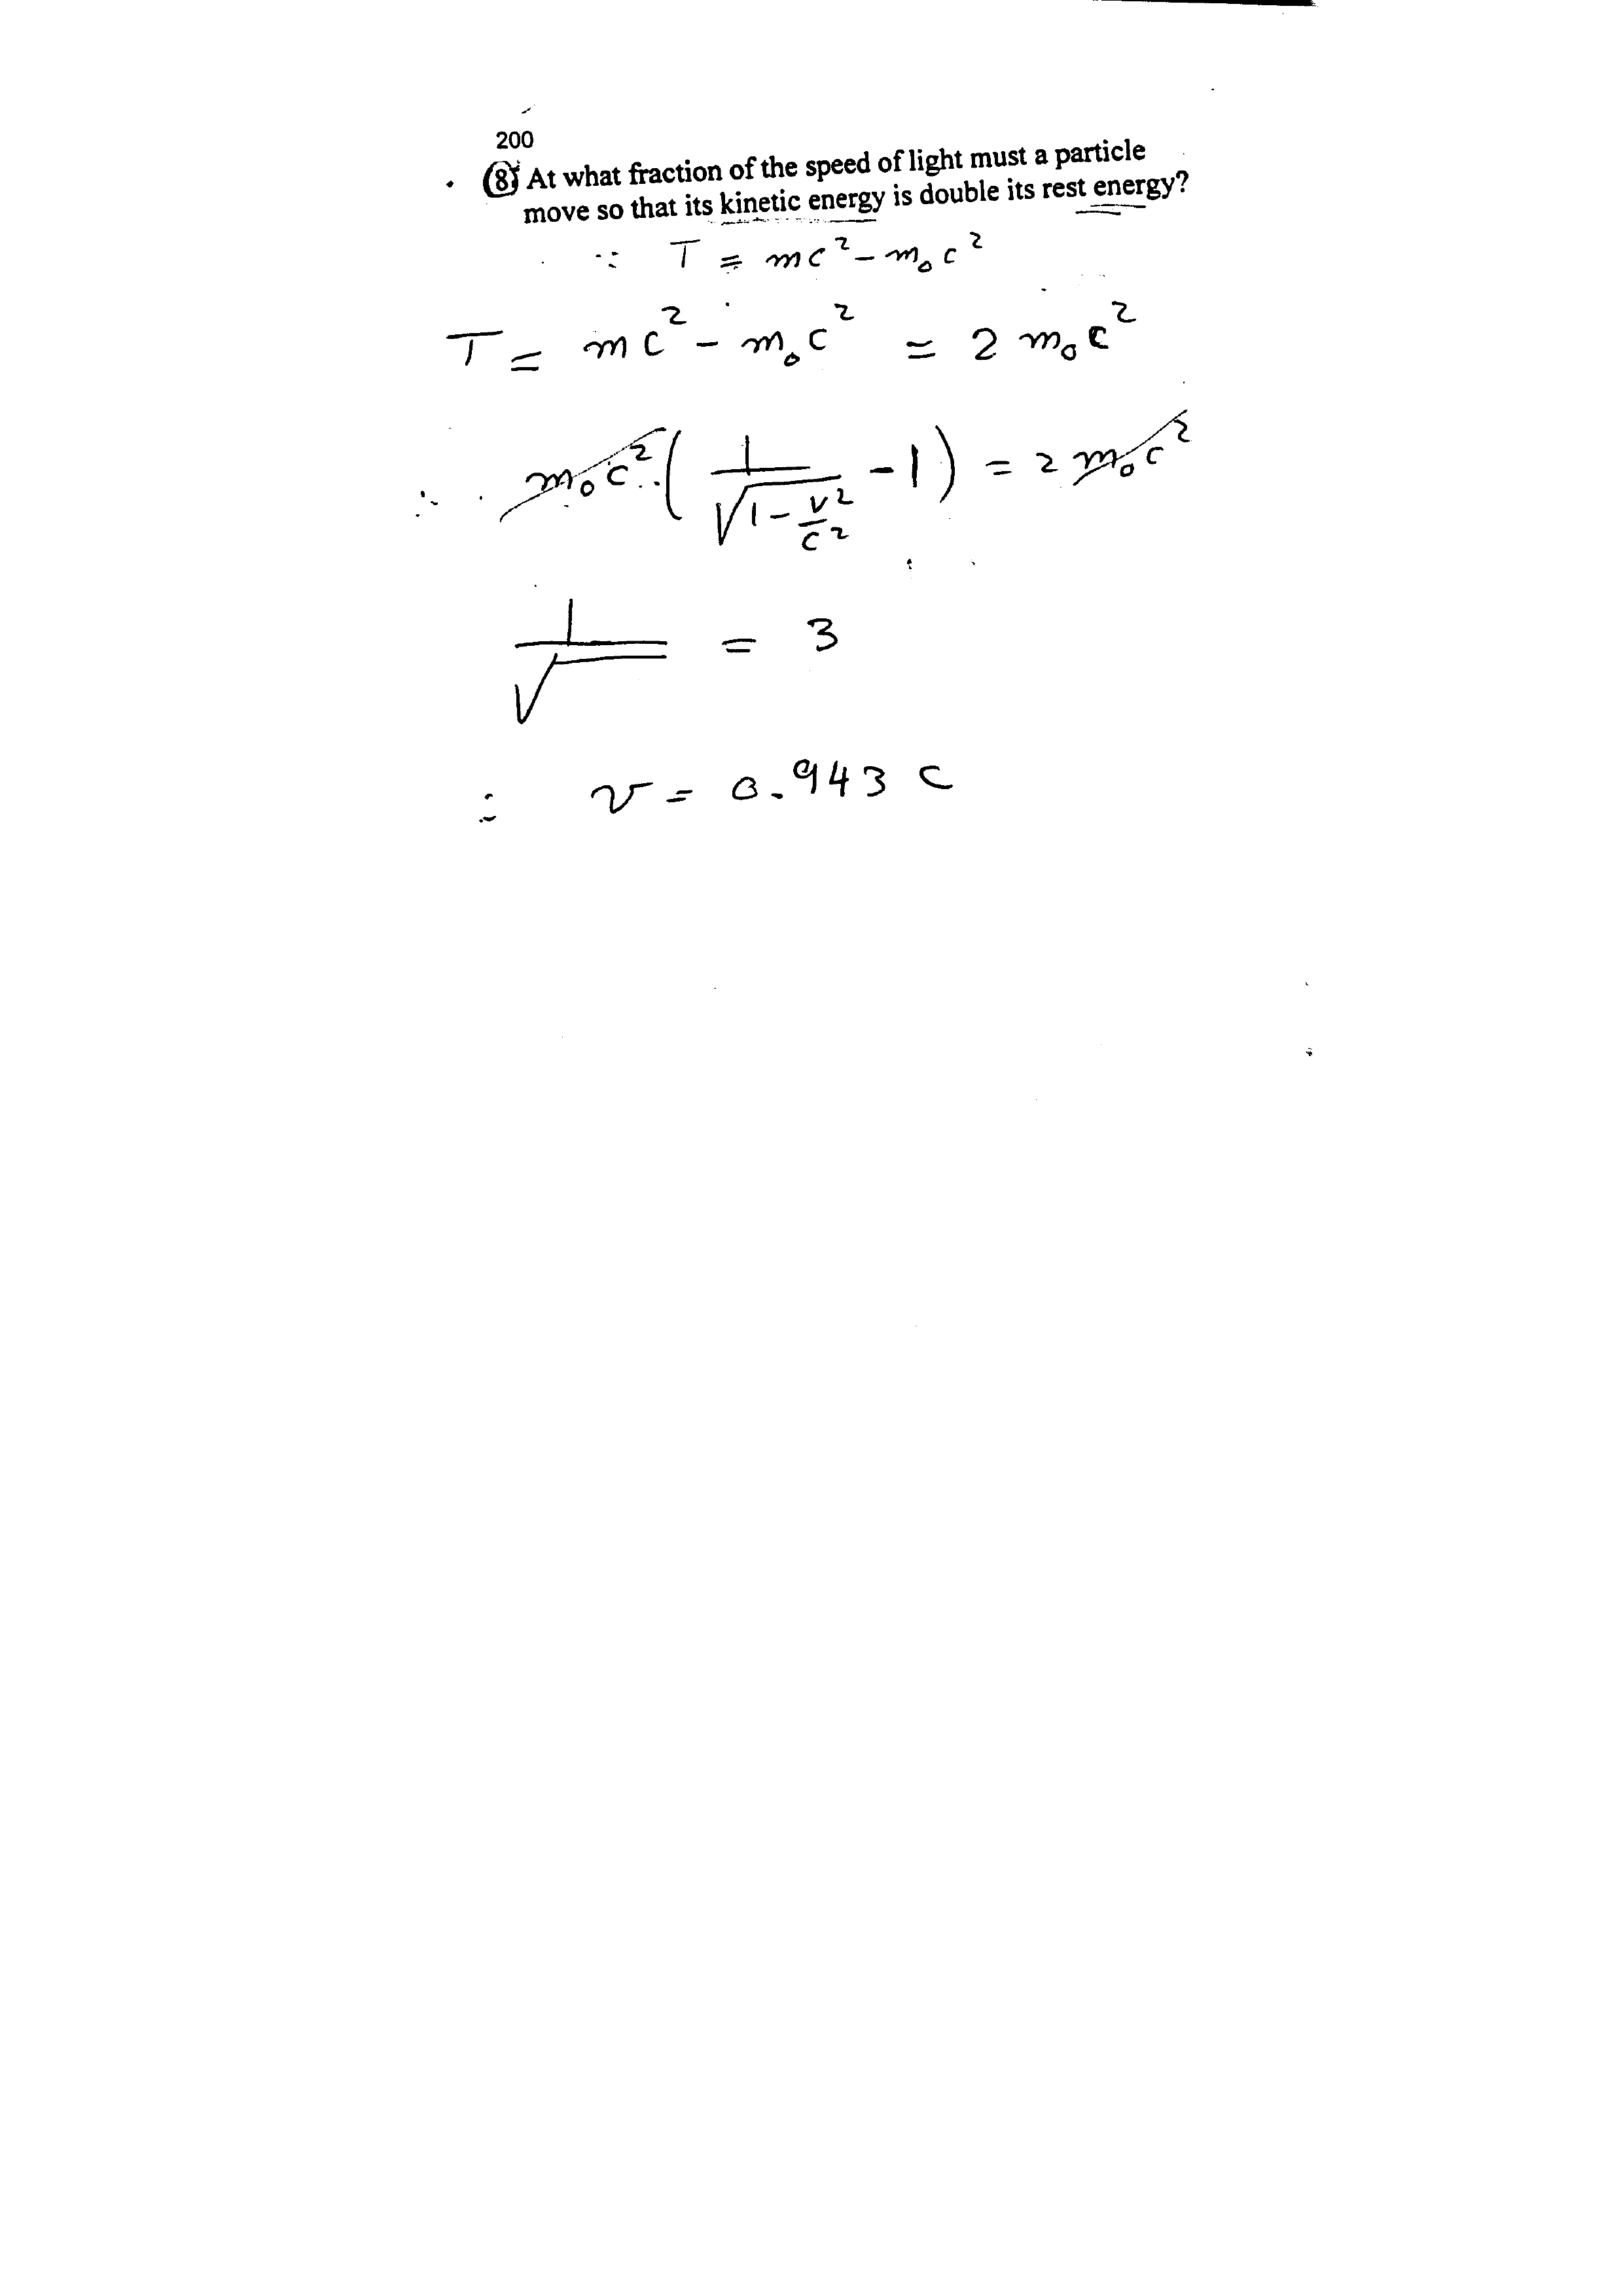 200
8) At what fraction of the speed of light must a particle
move so that its kinetic energy is double its rest energy?
∵ T = mc² - m₀c²
T = mc² - m₀c² = 2 m₀c²
∴ m₀c² ( 1/√(1 - v²/c²) - 1 ) = 2 m₀c²
1/√ = 3
∴ v = 0.943 c